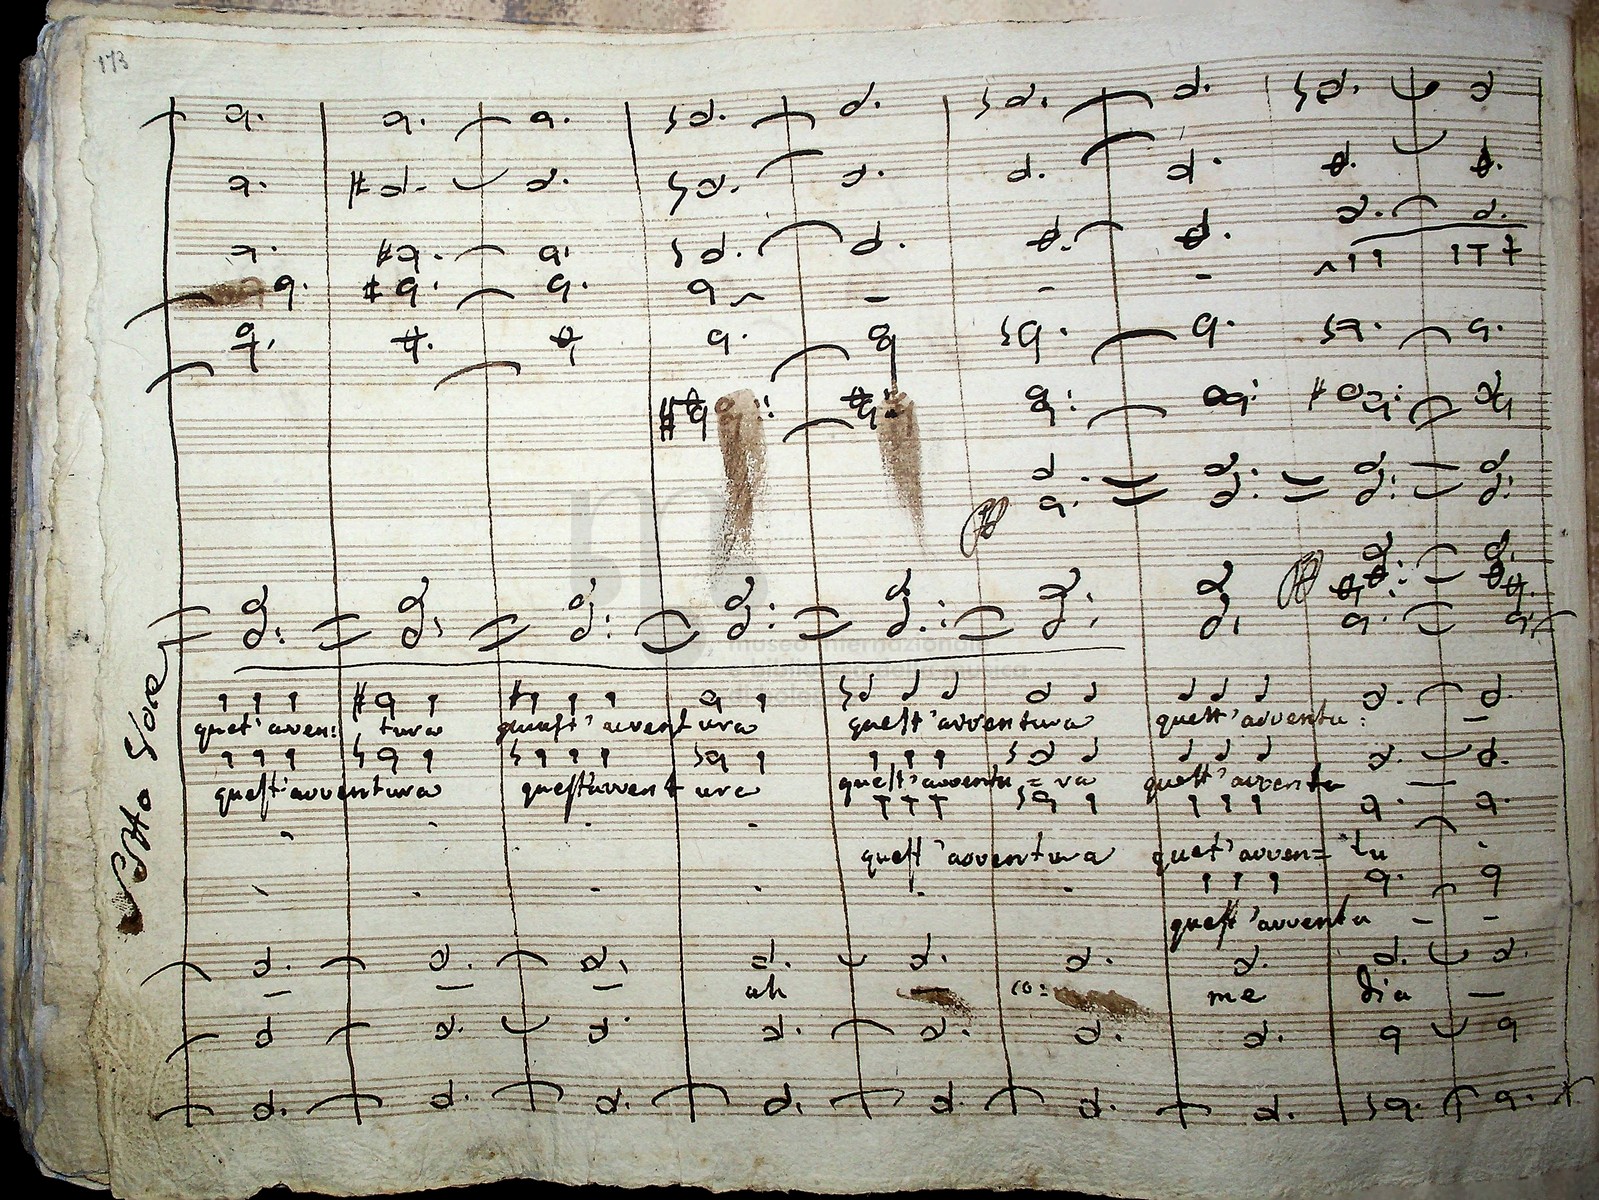 173
museo internazionale
e biblioteca della musica
di
Sotto Voce
quest' aven: tura quest' avventura quest' avventura quest' avventu:
quest' avventura quest'avventura quest' avventu = ra quest' avventu
quest' avventura quest' avven= tu
quest' avventu
ah co: me dia